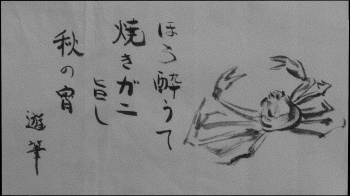 ほう酔うて
焼きガニ
旨し
秋の宵
遊筆